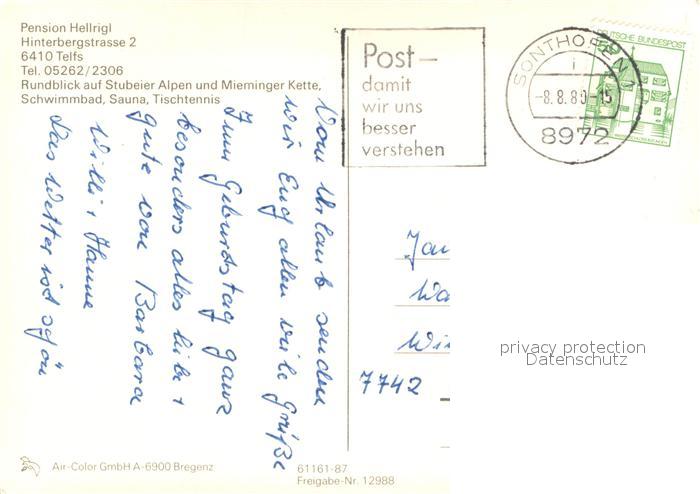 Pension Hellrigl
Hinterbergstrasse 2
6410 Telfs
Tel. 05262/2306
Rundblick auf Stubeier Alpen und Mieminger Kette,
Schwimmbad, Sauna, Tischtennis
Post-
damit
wir uns
besser
verstehen
SONTHOFEN 1
i
-8.8.80-15
8972
DEUTSCHE BUNDESPOST
50
Vom Urlaub senden
wir Euch allen viele Grüße
Zum Geburtstag ganz
besonders alles liebe +
gute von Barbara
Willi + Hanne
Das Wetter ist schön
7742
privacy protection
Datenschutz
Air-Color GmbH A-6900 Bregenz
61161-87
Freigabe-Nr. 12988